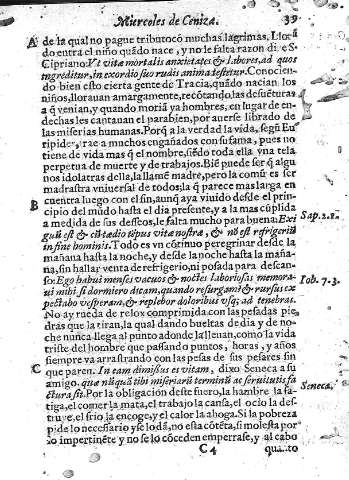 Miercoles de Ceniza. 39
A de la qual no pague tributocó muchas lagrimas, Llorá
do entra el niño quãdo nace, y no le falta razon di e S.
Cipriano: Vt vitæ mortalis anxietates & labores, ad quos
ingreditur, in exordio suo rudis anima testetur. Conocien-
do bien esto cierta gente de Tracia, quãdo nacian los
niños, llorauan amargamente, recõtando las desuẽturas
a q̃ venian, y quando moriã ya hombres, en lugar de en-
dechas les cantauan el parabien, por auerse librado de
las miserias humanas. Porq̃ a la verdad la vida, segũ Eu
ripides, rae a muchos engañados con su fama, pues no
tiene de vida mas q̃ el nombre, siẽdo toda ella vna tela
perpetua de muerte y de trabajos. Biẽ puede ser q̃ algu
nos idolatras della, la llamẽ madre, pero la comũ es ser
madrastra vniuersal de todos; la q̃ parece mas larga en
B cuentra luego con el fin, aunq̃ aya viuido desde el prin-
cipio del mũdo hasta el dia presente, y a la mas cũplida
a medida de sus desseos, le falta mucho para buena: Exi
guũ est & cũ tædio tẽpus vitæ nostræ, & nõ est refrigeriũ
in fine hominis. Todo es vn cõtinuo peregrinar desde la
Sap. 2.
mañana hasta la noche, y desde la noche hasta la maña-
na, sin hallar venta de refrigerio, ni posada para descan-
so: Ego habui menses vacuos & noctes laboriosas enumera-
ui mihi, si dormiero dicam, quando resurgam & rursus ex
pectabo vesperam, & replebor doloribus vsq; ad tenebras.
Iob. 7. 3.
No ay rueda de relox comprimida con las pesadas pie
dras que la tiran, la qual dando bueltas de dia y de no-
che nunca llega al punto adonde la lleuan, como la vida
triste del hombre que passando puntos, horas, y años
siempre va arrastrando con las pesas de sus pesares sin
C que paren. In eam dimissus es vitam, dixo Seneca a su
amigo. qua nũquã tibi miseriarũ terminũ ac seruitutis fa
Seneca.
ctura sit. Por la obligacion deste fuero, la hambre la fa-
tiga, el comer la mata, el trabajo la cansa, el ocio la des-
truye, el frio la encoge, y el calor la ahoga. Si la pobreza
pide lo necessario y se lo dã, no esta cõtẽta, si molesta por
lo impertinẽte y no se lo cõceden emperrase, y al cabo
C 4 quanto